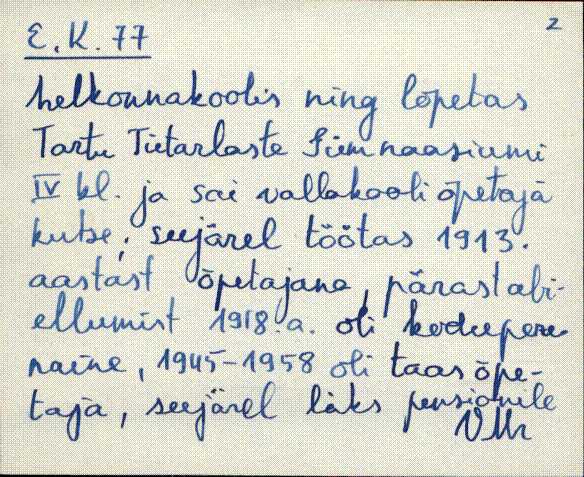 2
E.K. 77
helkonnakoolis ning lõpetas
Tartu Tütarlaste Gümnaasiumi
IV kl. ja sai vallakooli õpetaja
kutse, seejärel töötas 1913.
aastast õpetajana, pärast abi-
ellumist 1918.a. oli kodupere-
naine, 1945-1958 oli taas õpe-
taja, seejärel läks pensionile